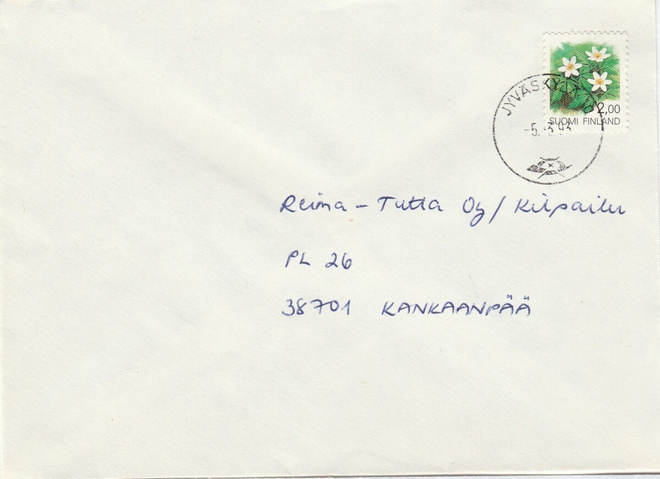 2,00
SUOMI FINLAND
JYVÄSKYLÄ
-5.-3.93
Reima-Tutta Oy/Kilpailu
PL 26
38701 KANKAANPÄÄ